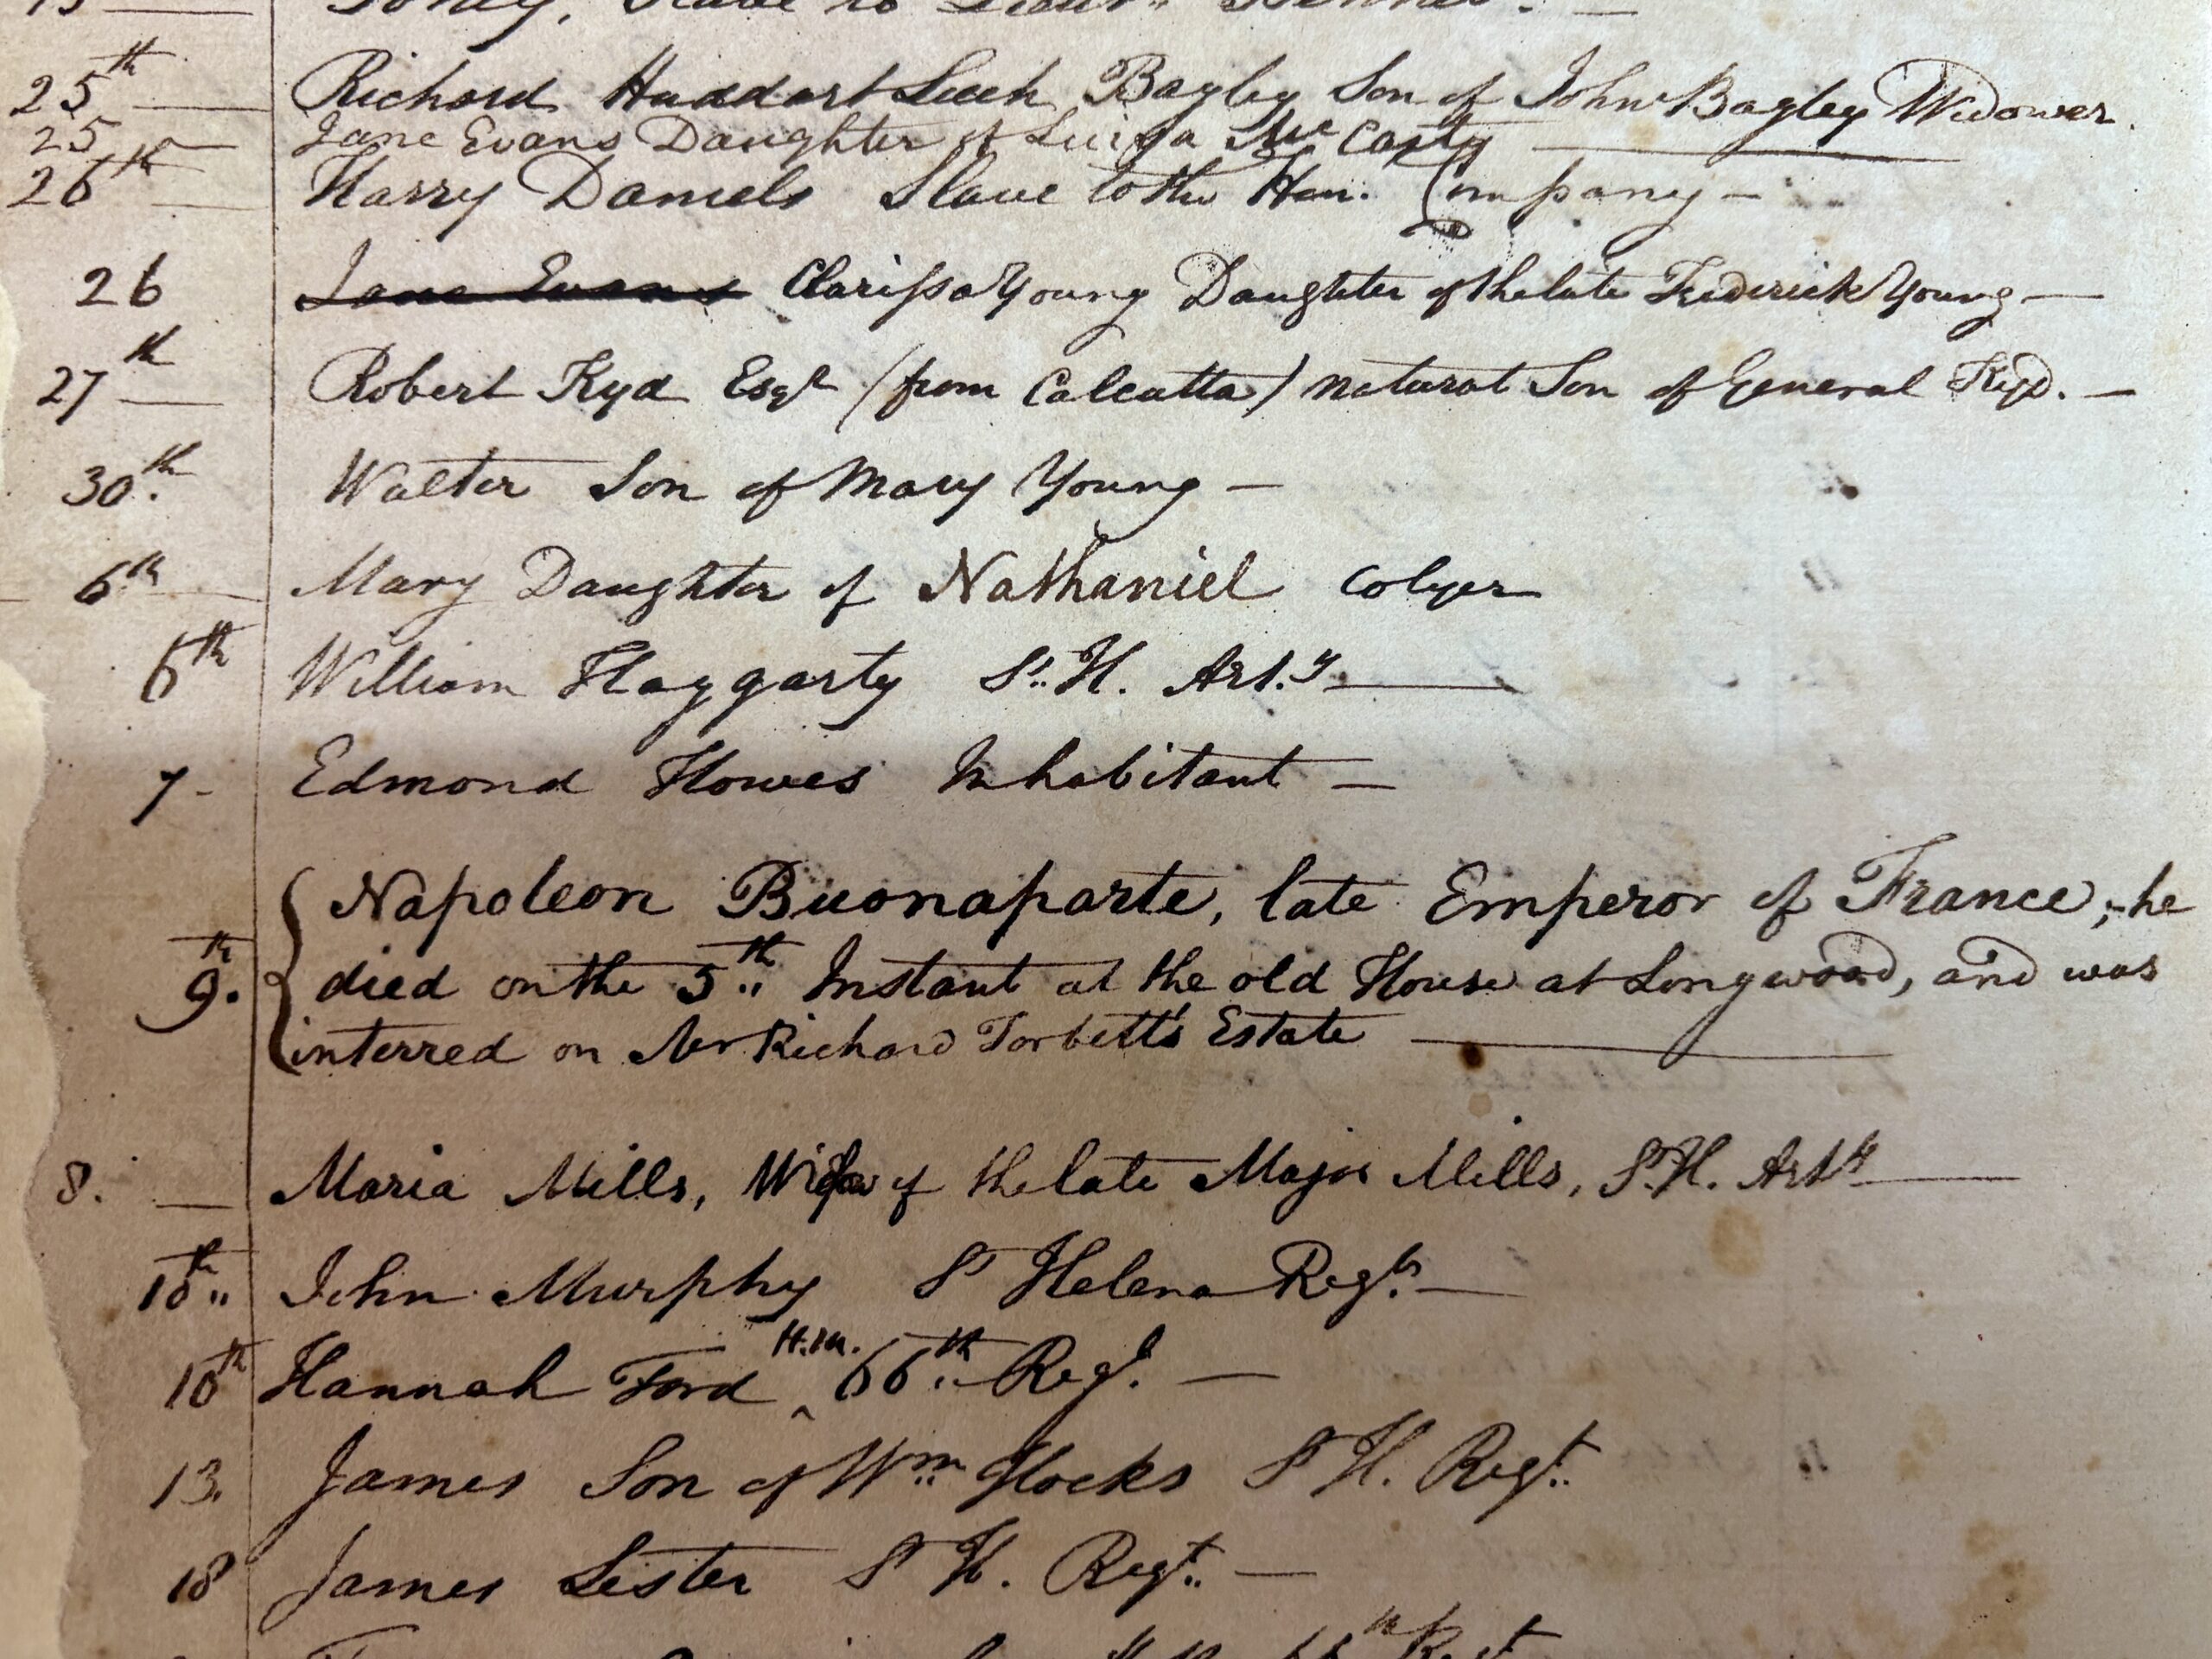 Toney, Slave to Lieut.
25th Richard Huddart Leech Bagley Son of John Bagley Widower.
25 Jane Evans Daughter of Luisa McCarty
26th Harry Daniels Slave to the Hon. Company —
26 Jane Evans Clarissa Young Daughter of the late Frederick Young —
27th Robert Kyd Esqr (from Calcutta) natural Son of General Kyd. —
30th. Walter Son of Mary Young —
6th Mary Daughter of Nathaniel Colyer
6th William Haggarty St. H. Art.y
7 - Edmond Howes Inhabitant —
Napoleon Buonaparte, late Emperor of France; he
9.th died on the 5th Instant at the old House at Longwood, and was
interred on Mr Richard Torbett's Estate
8. Maria Mills, Widow of the late Major Mills, St. H. Arty
10th John Murphy St Helena Regt. —
10th Hannah Ford H.M. 66th Regt. —
13. James Son of Wm Hocks St H. Regt.
18 James Lester St H. Regt. —